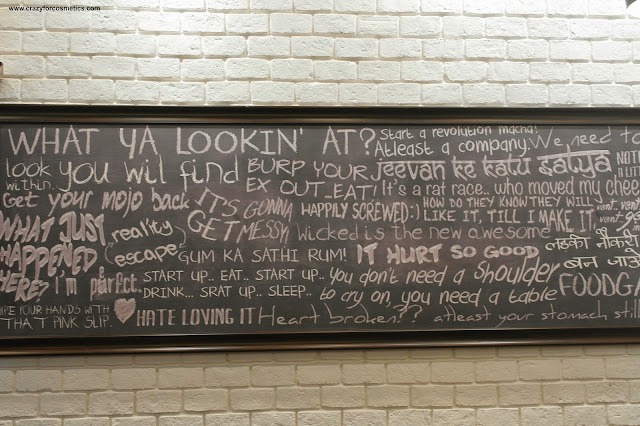 www.crazyforcosmetics.com
WHAT YA LOOKIN' AT?
Start a revolution macha!
Atleast a company.
We need to
look within.
you wil find
BURP YOUR
EX OUT_EAT!
Jeevan ke katu satya
It's a rat race.. who moved my chee
Get your mojo back
IT'S GUNNA
GET MESSY
HAPPILY SCREWED:)
HOW DO THEY KNOW THEY WILL
LIKE IT, TILL I MAKE IT
WHAT JUST
HAPPENED
HERE?
(reality
(escape)
Wicked is the new awesome
GUM KA SATHI RUM!
IT HURT SO GOOD
लड़का नौकरी
बन जाओ
i'm a parfect.
START UP.. EAT.. START UP..
DRINK... SRAT UP.. SLEEP..
you don't need a shoulder
to cry on, you need a table
FOODGA
IPE YOUR HANDS WITH
THAT PINK SLIP.
HATE LOVING IT
Heart broken??
atleast your stomach still